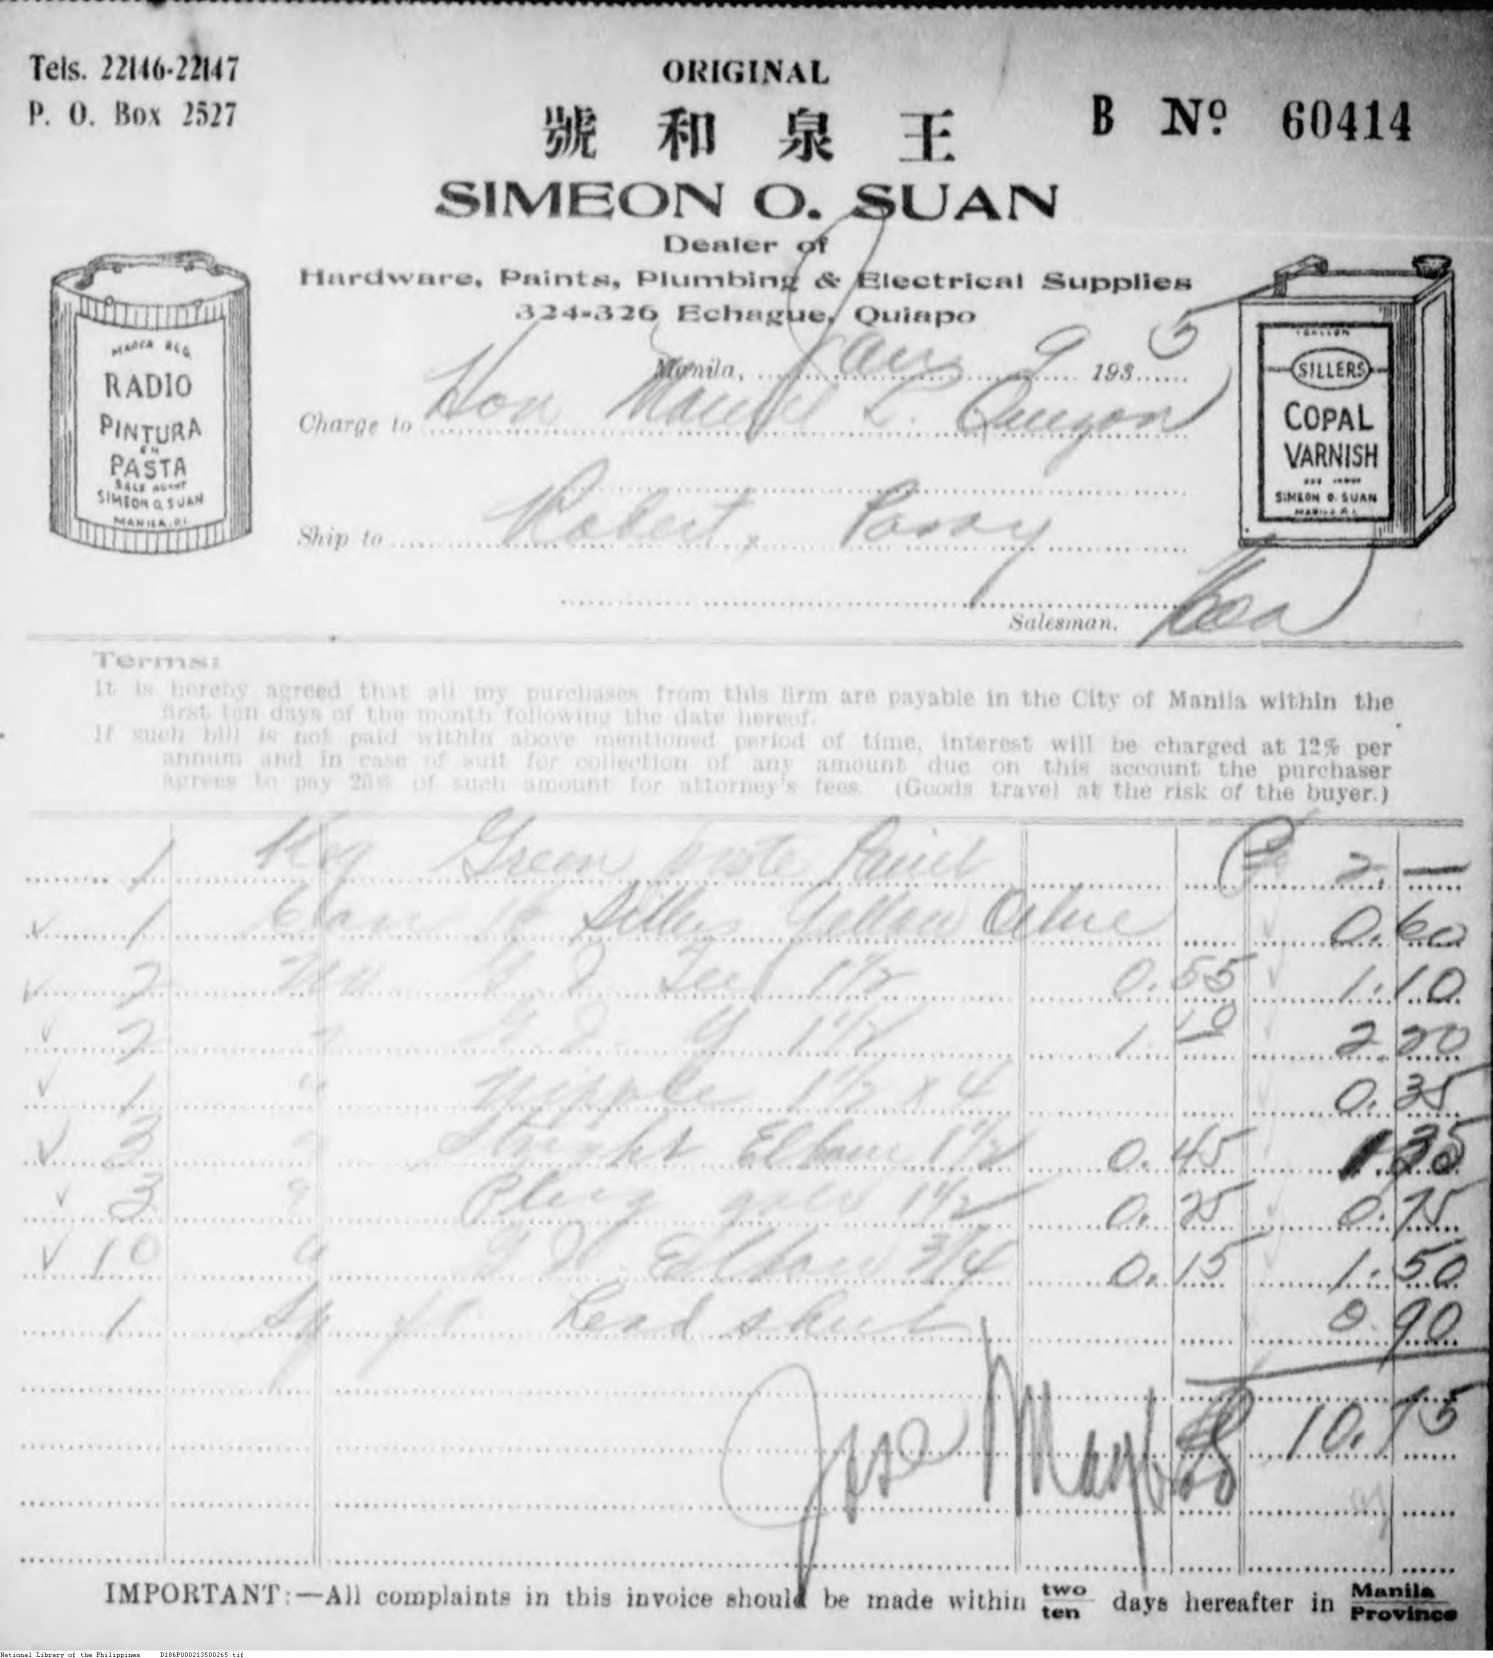 Tels. 22146-22147
P. O. Box 2527
ORIGINAL
號 和 泉 王
B Nº 60414
SIMEON O. SUAN
Dealer of
Hardware, Paints, Plumbing & Electrical Supplies
324-326 Echague, Quiapo
MARCA REG.
RADIO
PINTURA
EN
PASTA
SIMEON O. SUAN
MANILA, P.I.
1 GALLON
SILLERS
COPAL
VARNISH
SIMEON O. SUAN
MANILA P.I.
Manila, Jan 9 1935
Charge to Hon Manuel L. Quezon
Ship to Robert, Pasay
Salesman.
Terms:
It is hereby agreed that all my purchases from this firm are payable in the City of Manila within the
first ten days of the month following the date hereof.
If such bill is not paid within above mentioned period of time, interest will be charged at 12% per
annum and in case of suit for collection of any amount due on this account the purchaser
agrees to pay 25% of such amount for attorney's fees. (Goods travel at the risk of the buyer.)
1 Keg Green Paste Paint ₱ 2.—
1 Sillers Yellow 0.60
2 G. I. Tee 1 1/2 0.55 1.10
2 " G. I. Y 1 1/2 1.10 2.20
1 " Nipple 1 1/2 x 4 0.35
3 " Straight Elbow 1 1/2 0.45 1.35
3 " Plug 1 1/2 0.25 0.75
10 " G. I. Elbow 3/4 0.15 1.50
1 Sq ft. Lead sheet 0.90
₱ 10.75
Jose
IMPORTANT:—All complaints in this invoice should be made within two/ten days hereafter in Manila/Province
National Library of the Philippines D186P000213500265.tif